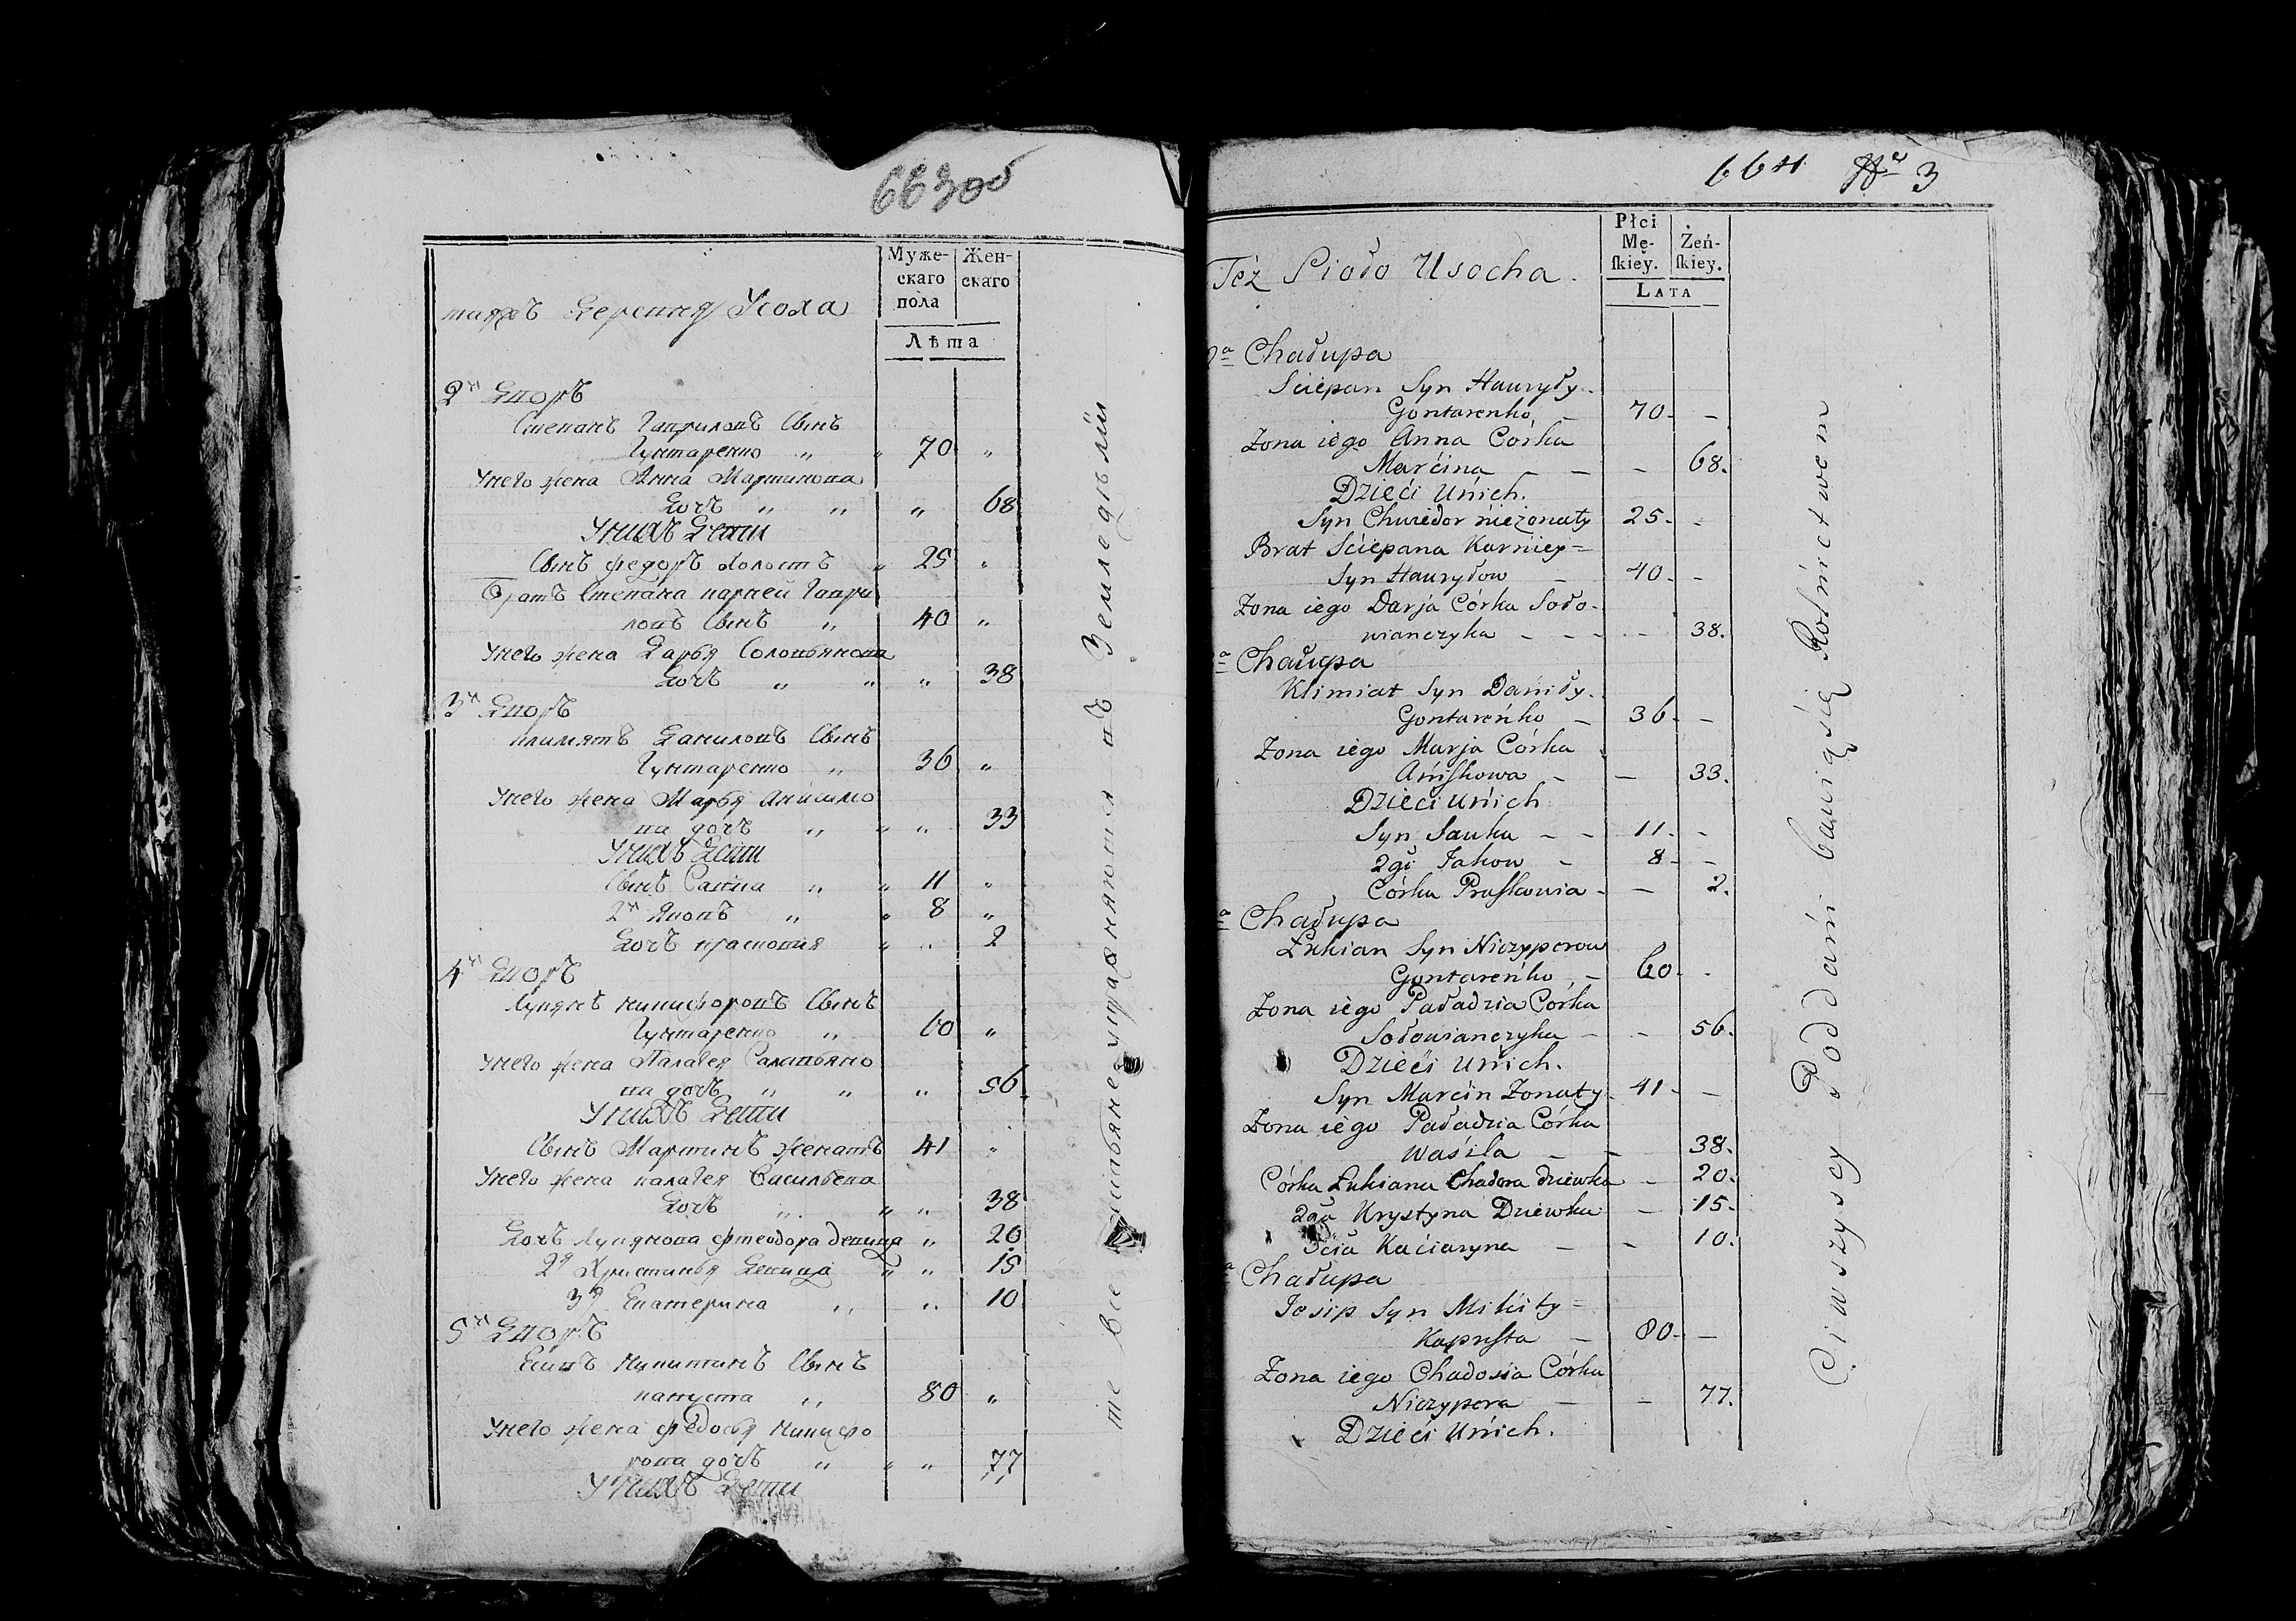 663об
Муже-
скаго
пола
Жен-
скаго
Лѣта
таяжъ Деревня Усоха
2й Дворъ
Степанъ Гавриловъ Сынъ
Гунтаренко " " 70 "
Унего жена Анна Мартинова
Дочъ " " " 68
Унихъ Дети
Сынъ Федоръ холостъ " 25 "
Братъ Степана карней Гаври
ловъ Сынъ " 40 "
Унего жена Дарья Соловьянова
Дочъ " " " 38
3й Дворъ
климятъ Даниловъ Сынъ
Гунтаренко " 36 "
Унего жена Марья Анисимо
ва дочъ " " " 33
Унихъ Дети
Сынъ Савка " " 11 "
2й Яковъ " " 8 "
Дочъ прасковия " " 2
4й Дворъ
Лукянъ никифоровъ Сынъ
Гунтаренко " 60 "
Унего жена Палагея Салавьяно
ва дочъ " " " 56
Унихъ Дети
Сынъ Мартинъ женатъ 41 "
Унего жена палагея Василъева
Дочъ " " " 38
Дочъ Лукянова Фтеодора девица " 20
2я Христинья Девица " " 15
3я Екатерина " " 10
5й Дворъ
Есипъ Никитинъ Сынъ
капуста " 80 "
Унего жена Федосья Никифо
рова дочъ " " " 77
Унихъ Дети
те все упражняются въ Земледѣлiи
664 № 3
Płci
Mę-
skiey.
Żeń-
skiey.
LATA
Też Siodo Usocha.
Chałupa
Sciepan Syn Hauryły
Gontarenko – 70 - –
Zona iego Anna Córka
Marcina – – – 68.
Dzieći Unich.
Syn Chwiedor nieżonaty 25 - -
Brat Sciepana Karniey =
Syn Hauryłow – 40 - -
Zona iego Darja Córka Soło-
wianczyka – – – – 38.
Chałupa
Klimiat Syn Daniły
Gontareńko – 36 - –
Zona iego Marja Córka
Aniskowa – – 33.
Dzieci unich
Syn Sauka – – 11 - -
2gi Jakow – 8 - –
Córka Praskowia - – 2.
Chałupa
Łukian Syn Niczyporow
Gontareńko – 60 - -
Zona iego Paładzia Córka
Sołowianczyka – – 56.
Dzieći Unich.
Syn Marcin Zonaty - 41 - –
Zona iego Paładzia Córka
Waśila – – 38.
Córka Łukiana Chadora dziewka – 20.
2ga Krystyna Dziewka – 15.
3cia Kaciaryna – – 10.
Chałupa
Josip Syn Mikity =
Kapusta – 80 - –
Zona iego Chadosia Córka
Niczypora – – 77.
Dzieći Unich.
Ci wszyscy Poddani bawią się Rolnictwem